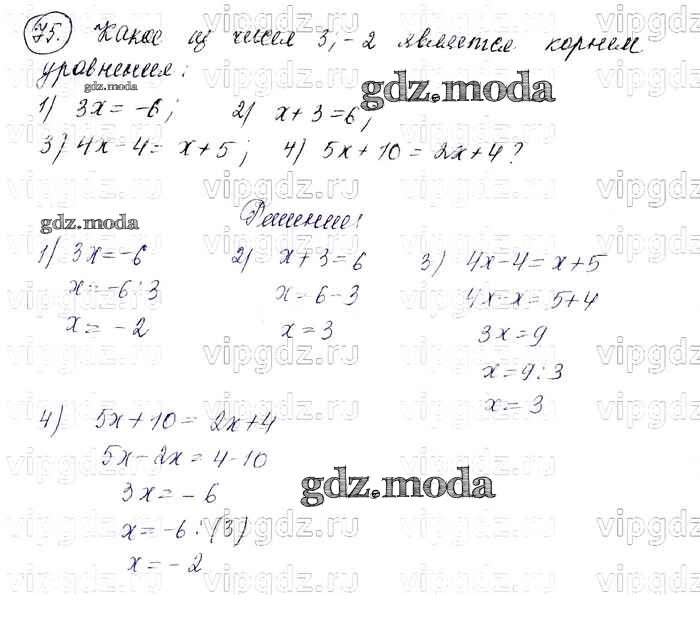 75. Какое из чисел 3, -2 является корнем
уравнения:
gdz.moda
1) 3x = -6; 2) x + 3 = 6;
gdz.moda
3) 4x - 4 = x + 5; 4) 5x + 10 = 2x + 4?
gdz.moda
Решение:
1) 3x = -6 2) x + 3 = 6 3) 4x - 4 = x + 5
x = -6 : 3 x = 6 - 3 4x - x = 5 + 4
x = -2 x = 3 3x = 9
x = 9 : 3
x = 3
4) 5x + 10 = 2x + 4
5x - 2x = 4 - 10
3x = -6
gdz.moda
x = -6 : (3)
x = -2
vipgdz.ru